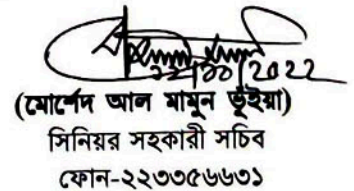 ২২/১১/2022
(মোর্শেদ আল মামুন ভূঁইয়া)
সিনিয়র সহকারী সচিব
ফোন-২২৩৩৫৬৬৩১